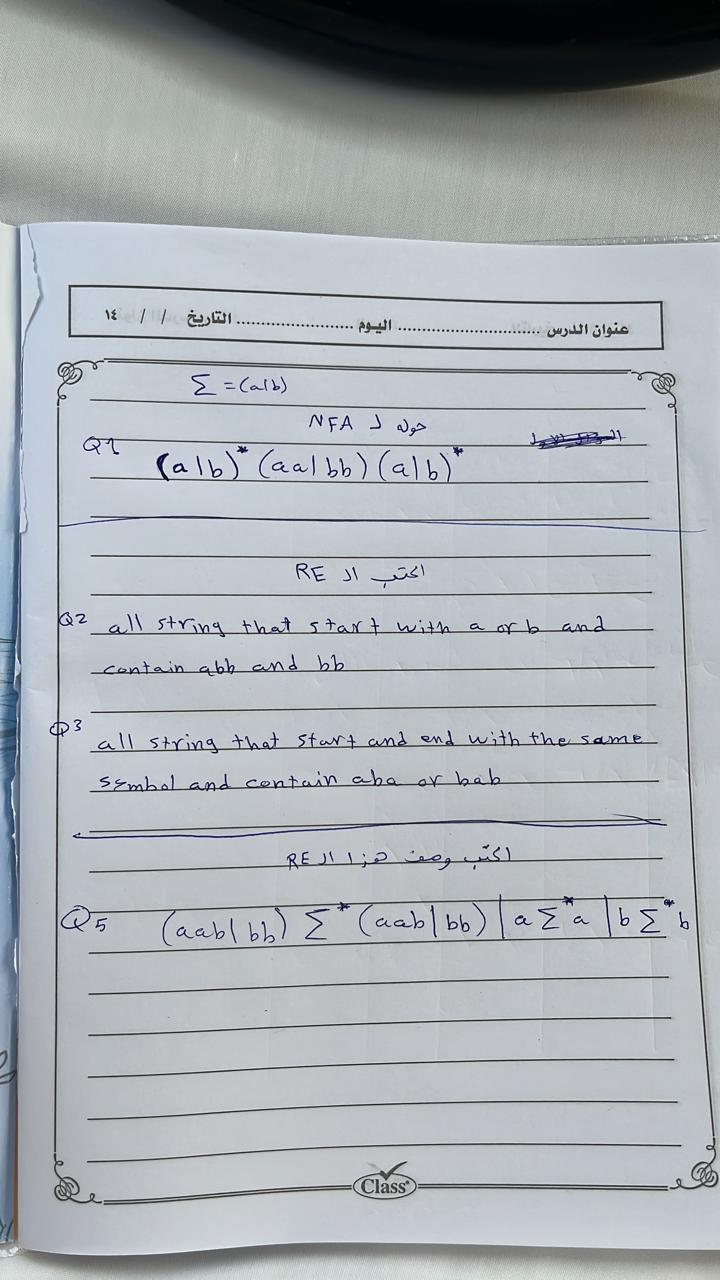 عنوان الدرس ........................ اليوم ........................ التاريخ / / ١٤
Σ = (a|b)
حوله لـ NFA
Q1
(a|b)* (aa|bb) (a|b)*
اكتب الـ RE
Q2 all string that start with a or b and
contain abb and bb
Q3 all string that start and end with the same
symbol and contain aba or bab
اكتب وصف هذا الـ RE
Q5 (aab|bb) Σ* (aab|bb) | a Σ* a | b Σ* b
Class